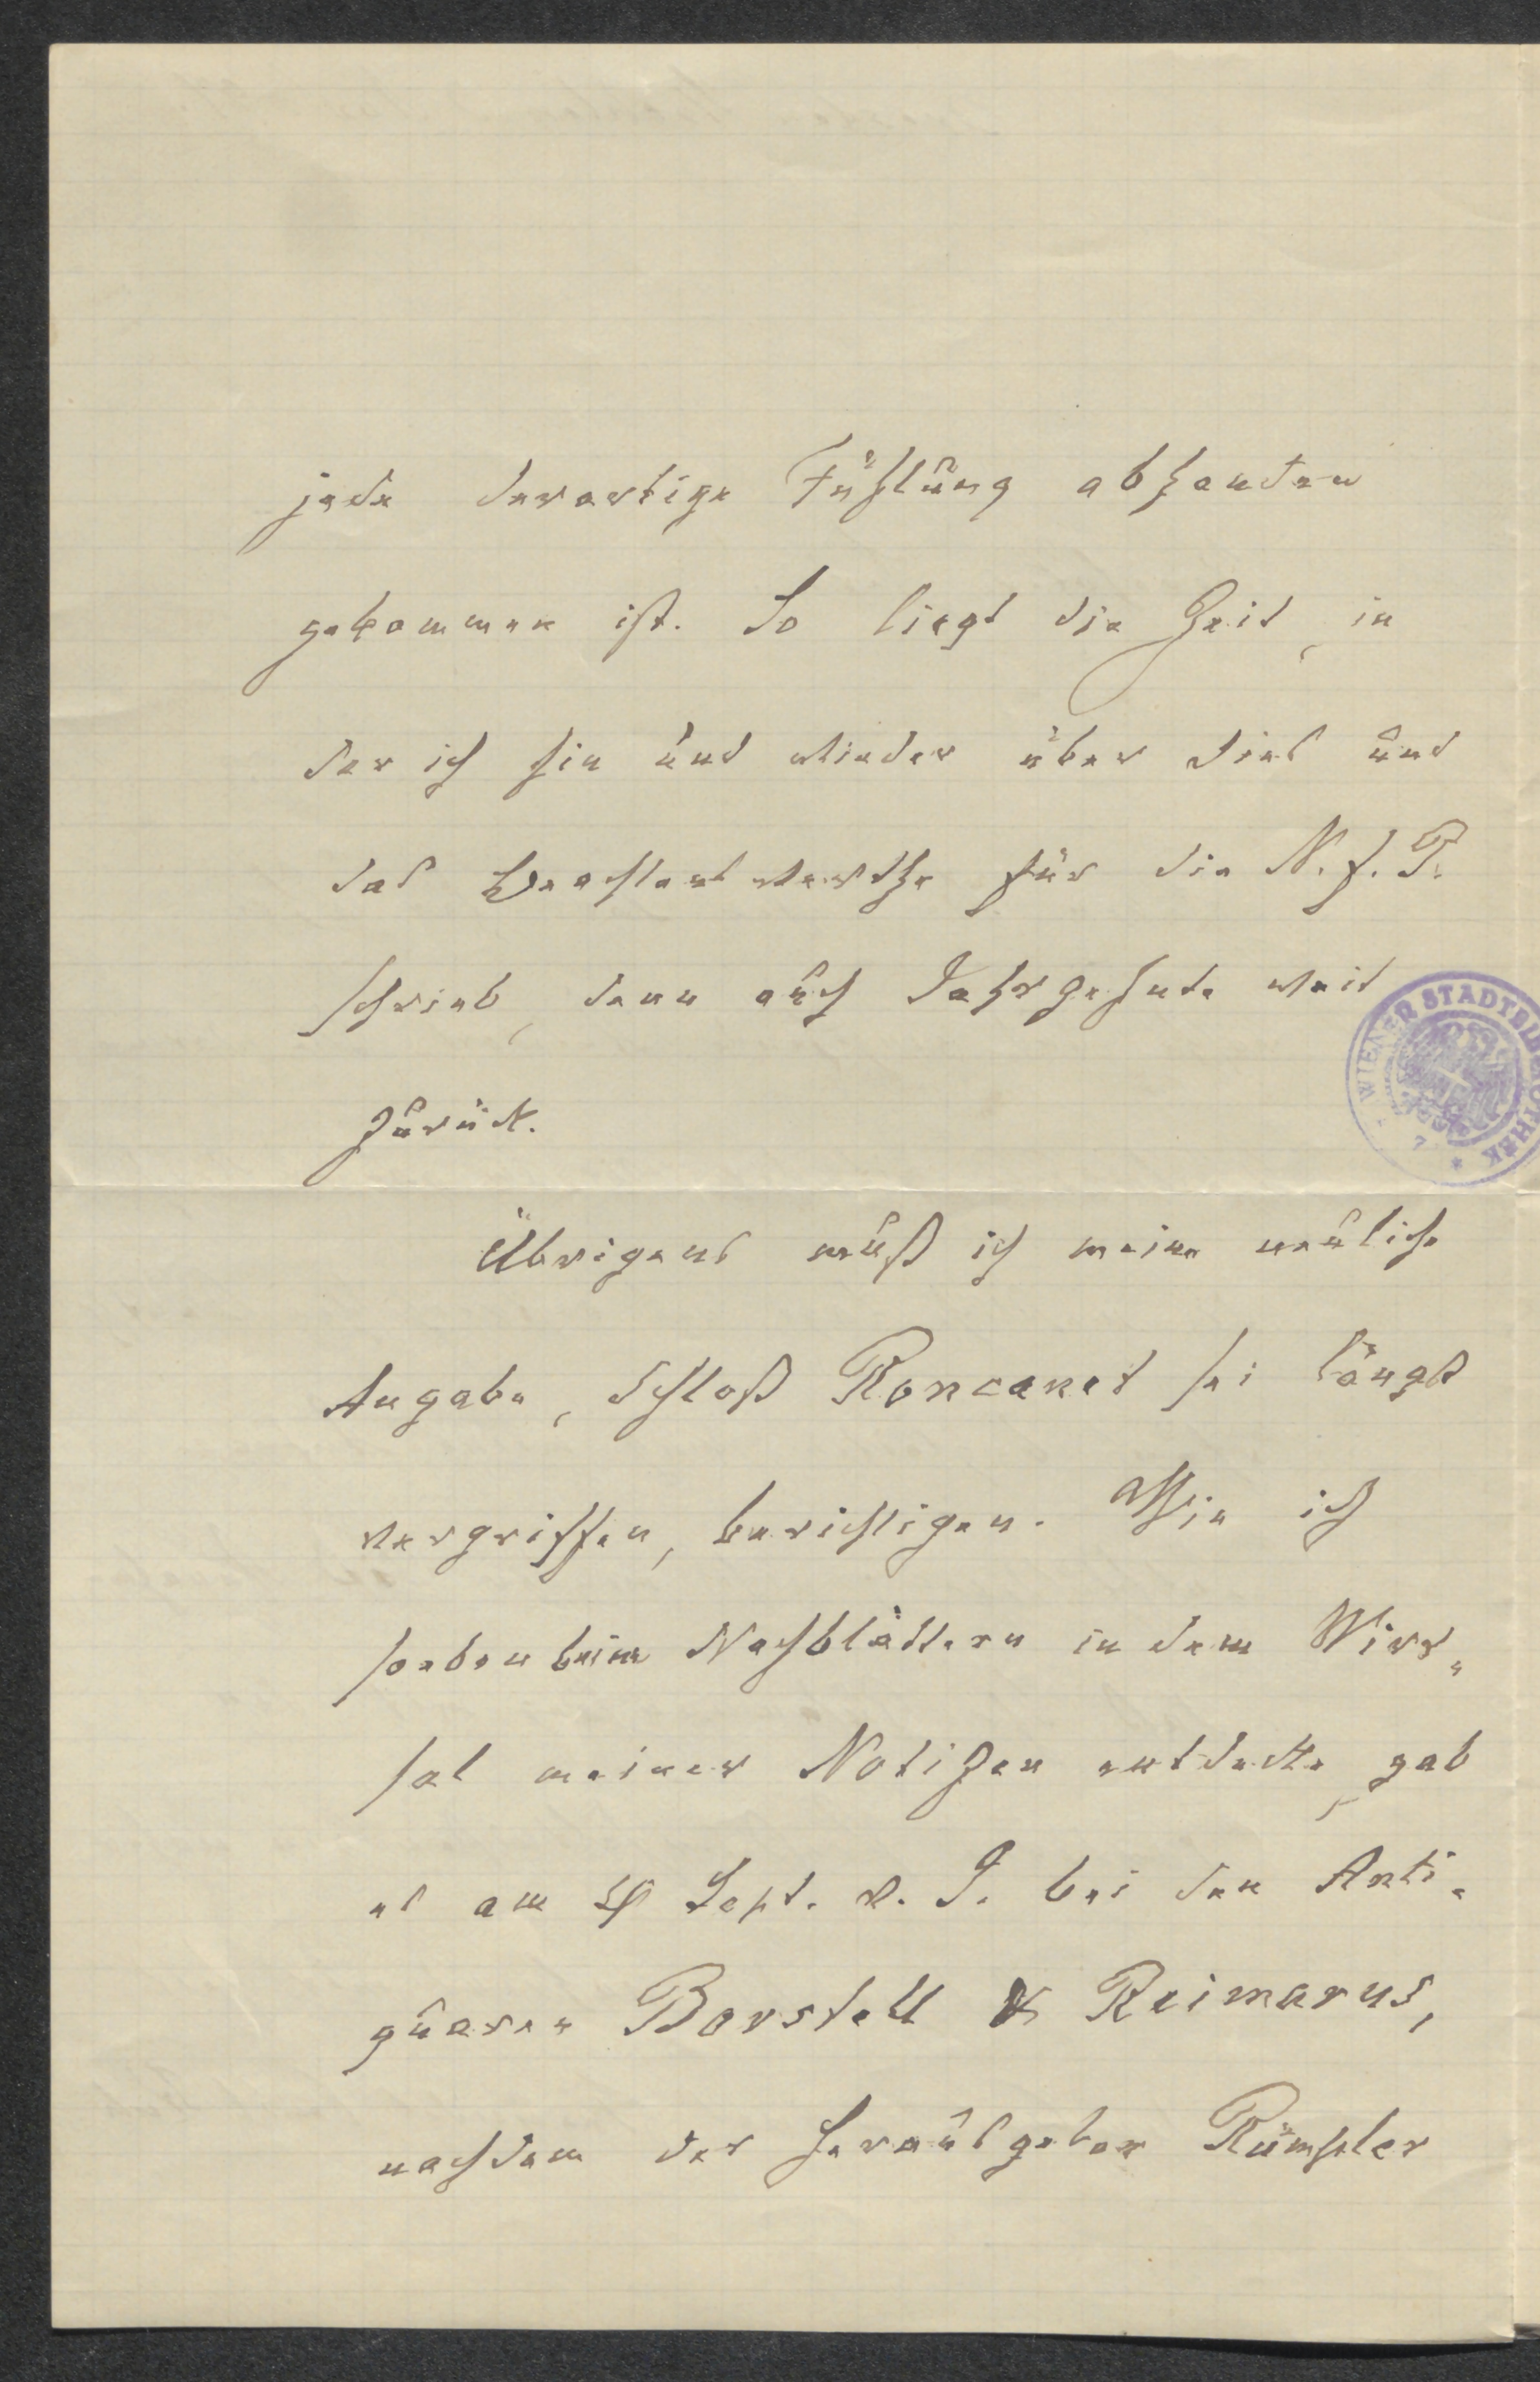 jede derartige Fühlung abhanden
gekommen ist. So liegt die Zeit, in
der ich hin und wieder über dies und
das Beachtenswerthe für die N. f. P.
schrieb, denn auch Jahrzehnte weit
zurück.
Übrigens muß ich meine neuliche
Angabe, Schloß Roncanet sei längst
vergriffen, berichtigen. Wie ich
soeben beim Nachblättern in dem Wirr„
sal meiner Notizen entdeckte, gab
es am Sept. v. J. bei den Anti„
quaren Borstell & Reimarus,
nachdem der Herausgeber Rümpler
WIENER STADTBIBLIOTHEK